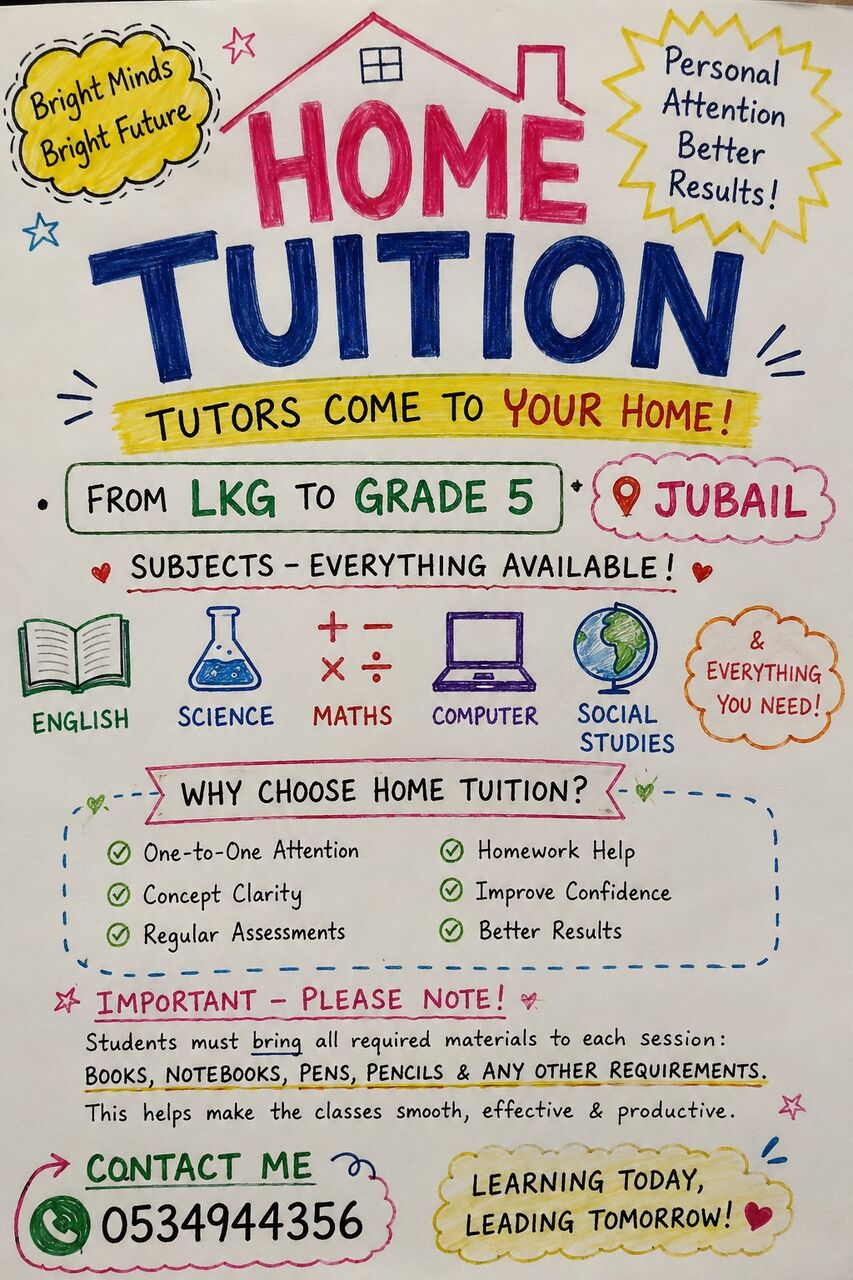 Bright Minds
Bright Future
Personal
Attention
Better
Results!
HOME
TUITION
TUTORS COME TO YOUR HOME!
FROM LKG TO GRADE 5
JUBAIL
SUBJECTS - EVERYTHING AVAILABLE!
ENGLISH
SCIENCE
MATHS
COMPUTER
SOCIAL
STUDIES
&
EVERYTHING
YOU NEED!
WHY CHOOSE HOME TUITION?
One-to-One Attention
Concept Clarity
Regular Assessments
Homework Help
Improve Confidence
Better Results
IMPORTANT - PLEASE NOTE!
Students must bring all required materials to each session:
BOOKS, NOTEBOOKS, PENS, PENCILS & ANY OTHER REQUIREMENTS.
This helps make the classes smooth, effective & productive.
CONTACT ME
0534944356
LEARNING TODAY,
LEADING TOMORROW!